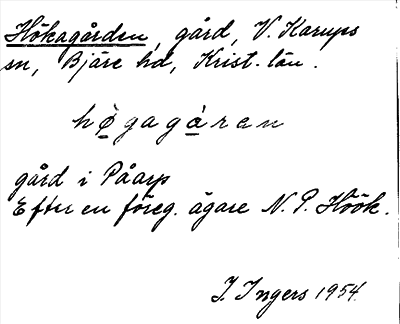 Hökagården, gård, V. Karups
sn, Bjäre hd, Krist. län.
høgagåren
gård i Påarp
Efter en föreg. ägare N. P. Höök.
I. Ingers 1954